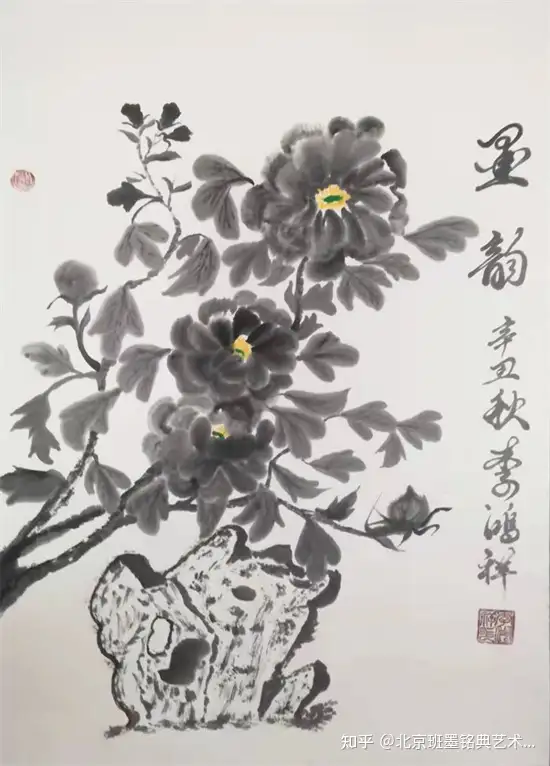 墨韵
辛丑秋李鸿祥
知乎 @北京班墨铭典艺术...